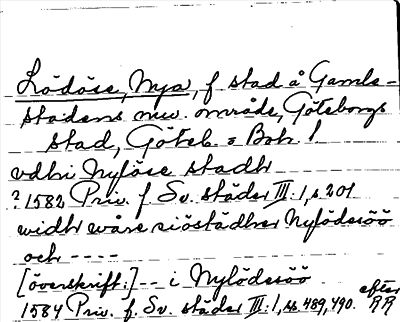 Lödöse, Nya, f. stad å Gamle-
stadens nuv. område, Göteborgs
stad, Göteb. o Boh. l
vdhi Nyløse stadh
? 1582 Priv. f. Sv. städer III: 1, s 201
widh wåre siöstädher Nylödesöö
och ----
[överskrift:] -- i Nylödesöö
1584 Priv. f. Sv. städer III: 1, ss. 489, 490. efter RR